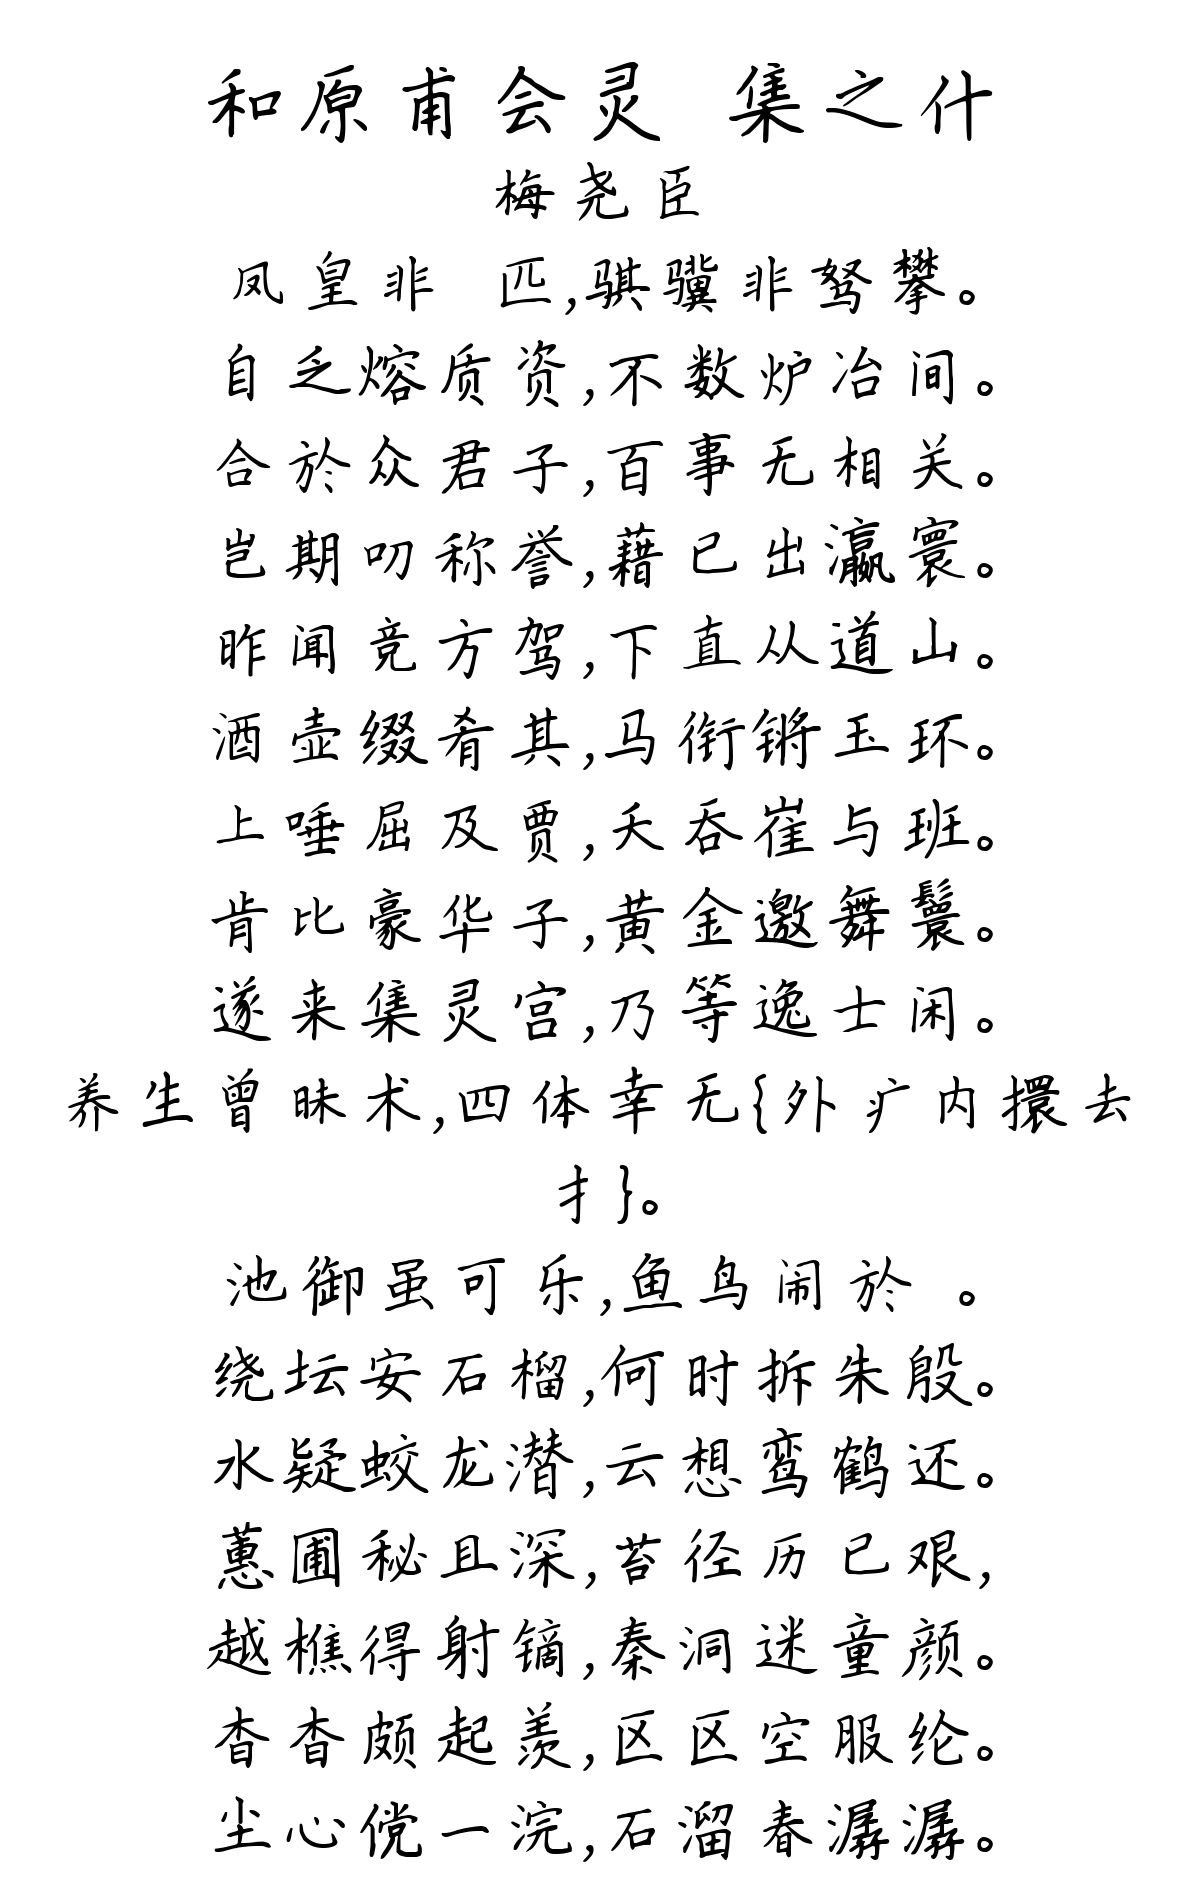 和原甫会灵 集之什
梅尧臣
凤皇非 匹,骐骥非驽攀。
自乏熔质资,不数炉冶间。
合於众君子,百事无相关。
岂期叨称誉,藉已出瀛寰。
昨闻竞方驾,下直从道山。
酒壶缀肴其,马衔锵玉环。
上唾屈及贾,夭吞崔与班。
肯比豪华子,黄金邀舞鬟。
遂来集灵宫,乃等逸士闲。
养生曾昧术,四体幸无{外疒内擐去
扌}。
池御虽可乐,鱼鸟闹於 。
绕坛安石榴,何时拆朱殷。
水疑蛟龙潜,云想鸾鹤还。
蕙圃秘且深,苔径历已艰,
越樵得射镝,秦洞迷童颜。
杳杳颇起羡,区区空服纶。
尘心傥一浣,石溜春潺潺。